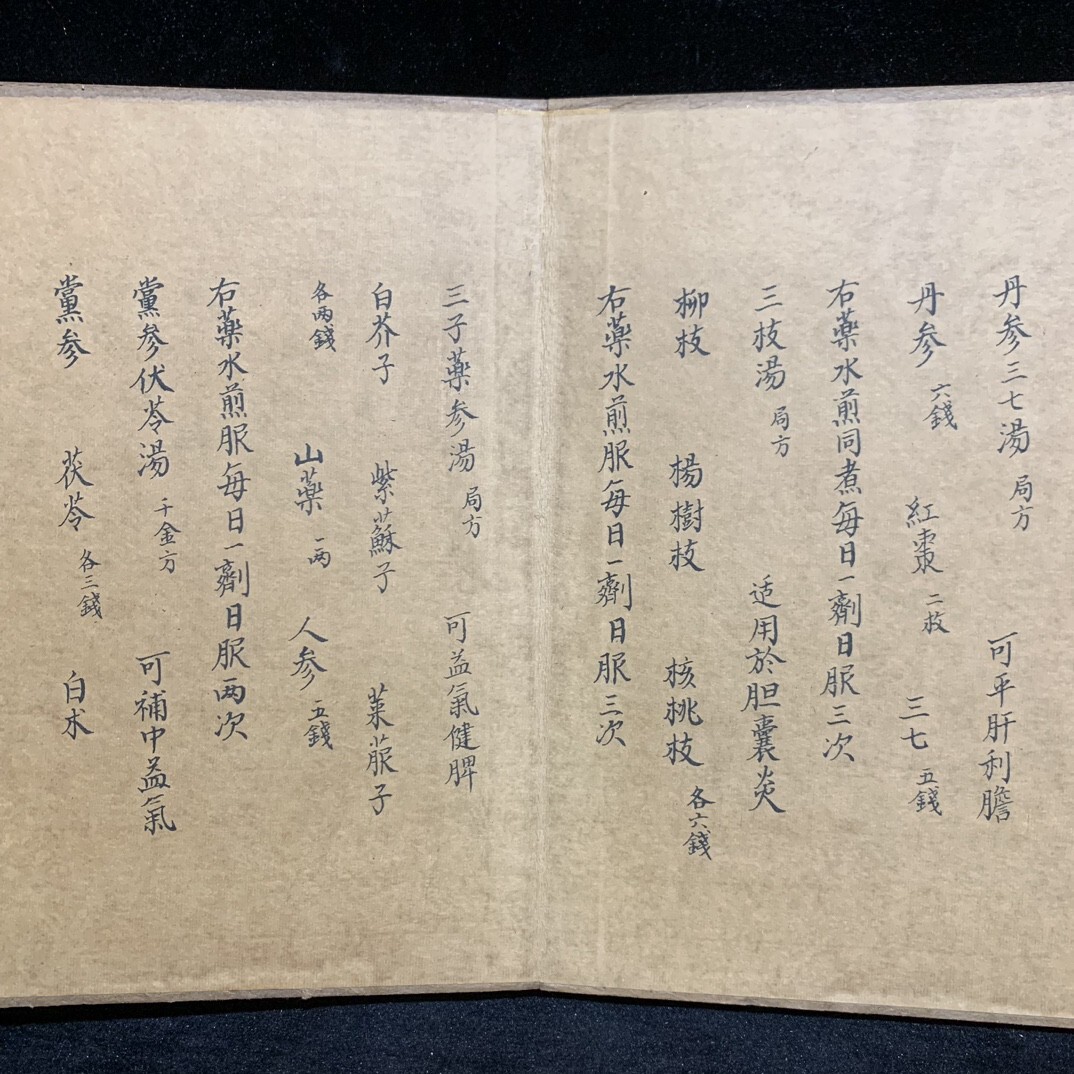 丹参三七湯 局方 可平肝利膽
丹参 六錢 紅棗 二枚 三七 五錢
右藥水煎同煮每日一劑日服三次
三枝湯 局方 适用於胆囊炎
柳枝 楊樹枝 核桃枝 各六錢
右藥水煎服每日一劑日服三次
三子藥参湯 局方 可益氣健脾
白芥子 紫蘇子 莱菔子
各两錢 山藥 一两 人参 五錢
右藥水煎服每日一劑日服两次
黨参伏苓湯 千金方 可補中益氣
黨参 茯苓 各三錢 白术